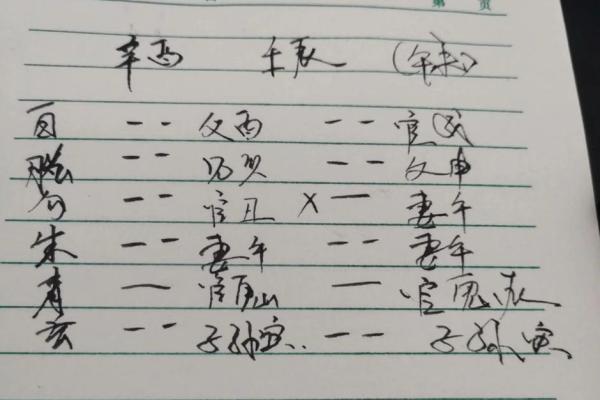 第 页
辛酉 壬辰 (午未)
白 -- 父酉 -- 官戌
-- -- 父申
勾 -- 官丑 ×— 妻午
朱 -- 妻午 -- 妻午
青 — 官 — 官鬼辰
玄 -- 子孙寅 -- 子孙寅